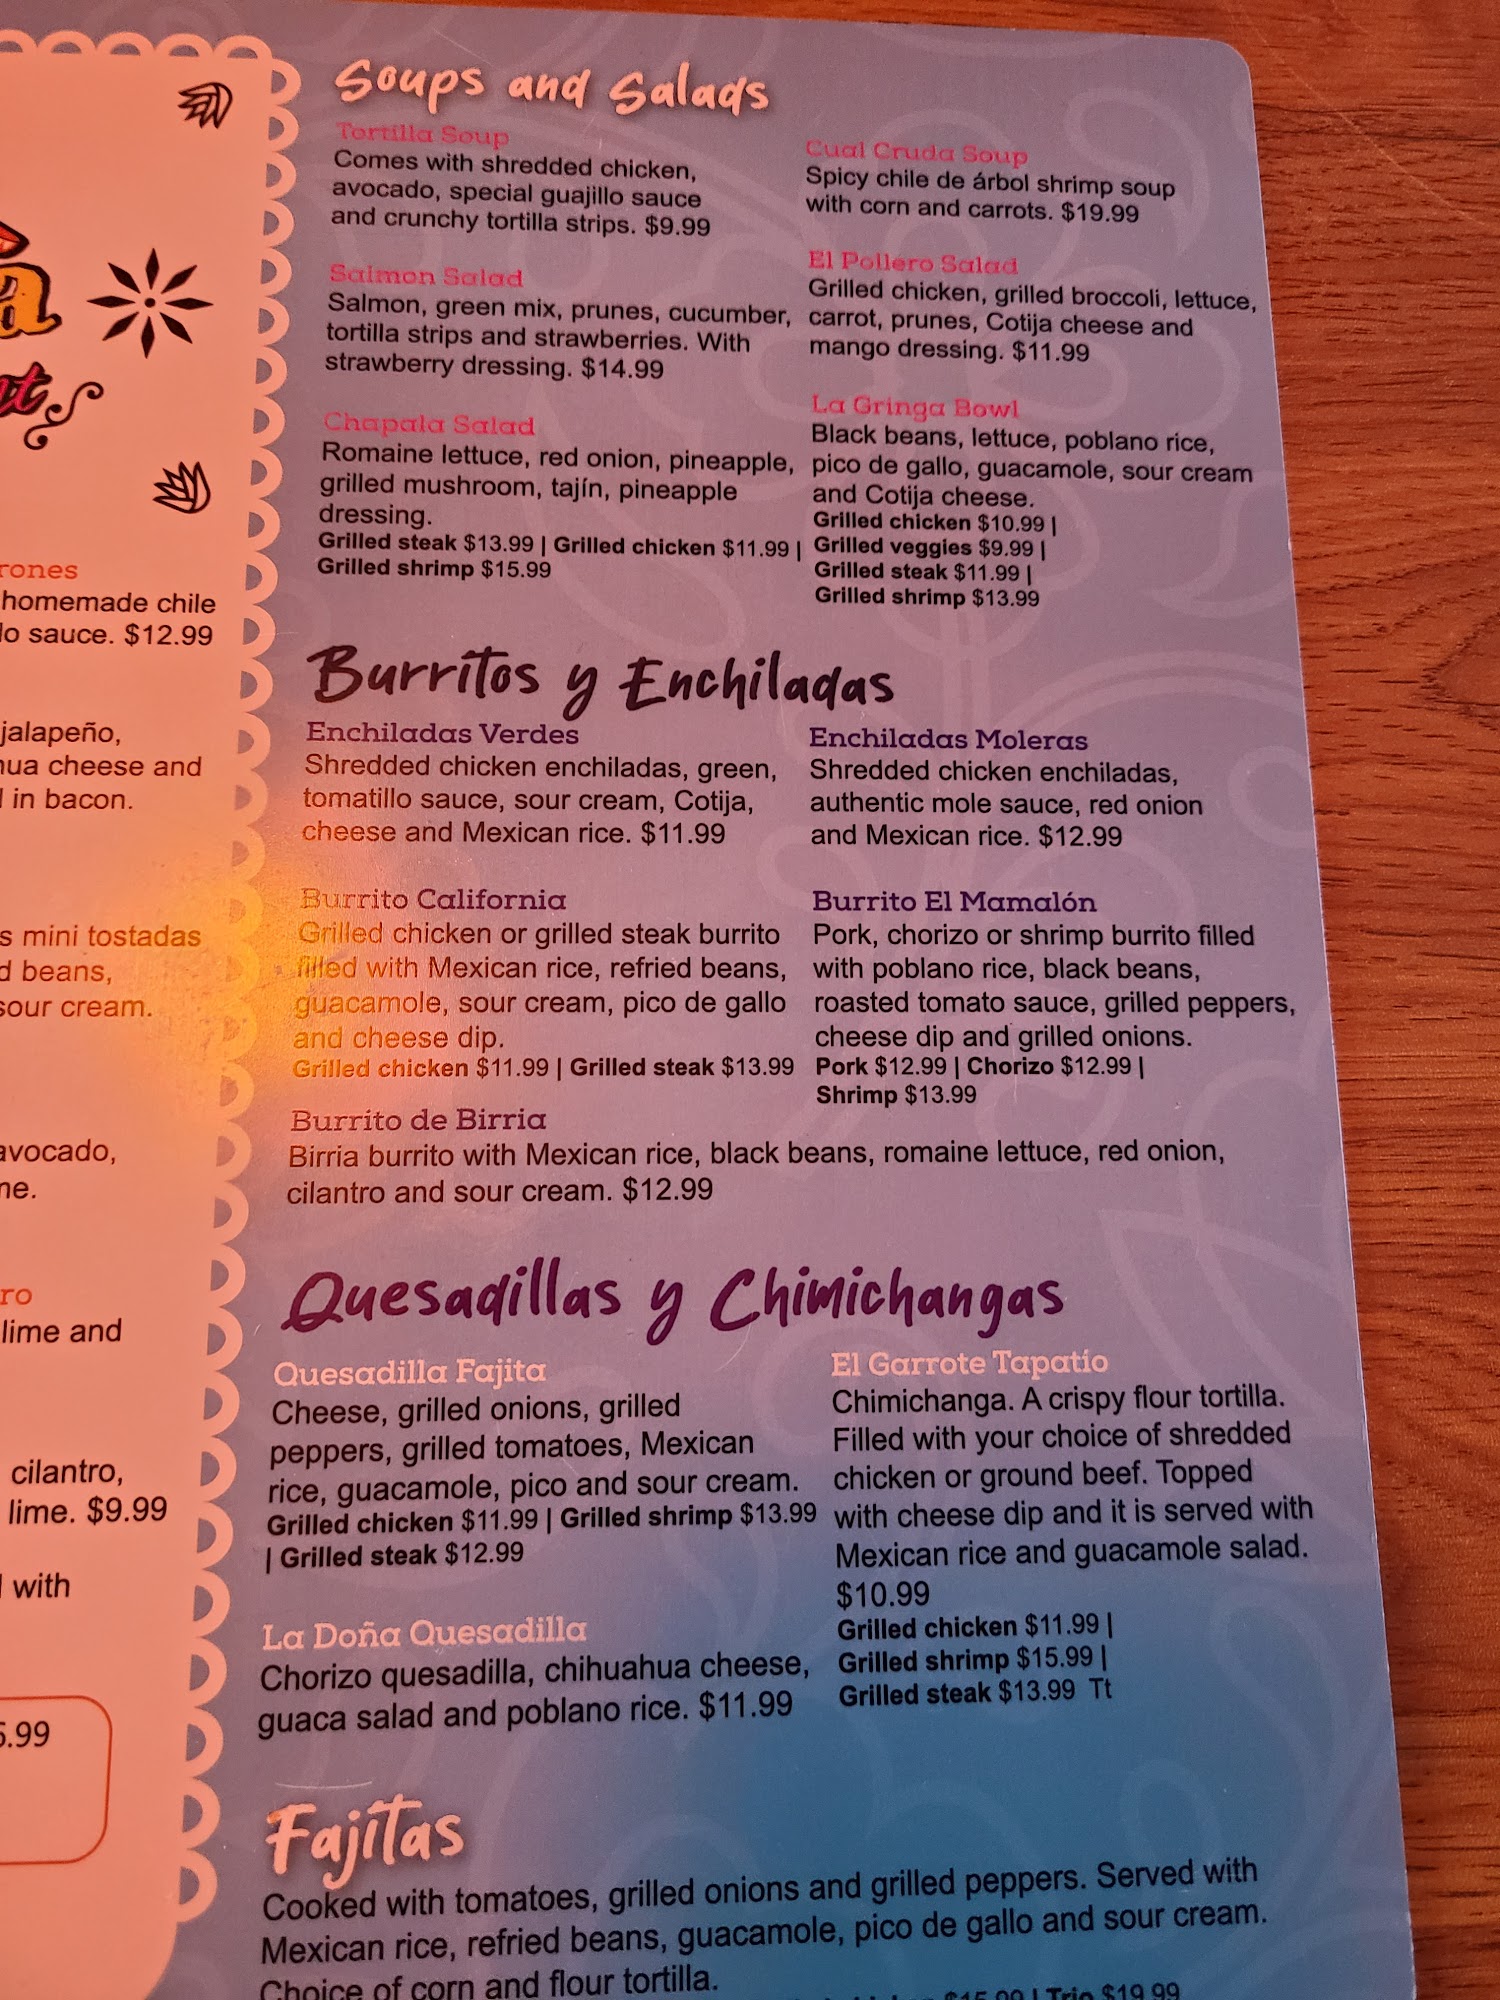 rones
homemade chile
lo sauce. $12.99
jalapeño,
cheese and
in bacon.
s mini tostadas
d beans,
sour cream.
avocado,
ne.
ro
lime and
cilantro,
lime. $9.99
with
5.99
Soups and Salads
Tortilla Soup
Comes with shredded chicken,
avocado, special guajillo sauce
and crunchy tortilla strips. $9.99
Salmon Salad
Salmon, green mix, prunes, cucumber,
tortilla strips and strawberries. With
strawberry dressing. $14.99
Chapala Salad
Romaine lettuce, red onion, pineapple,
grilled mushroom, tajín, pineapple
dressing.
Grilled steak $13.99 | Grilled chicken $11.99 |
Grilled shrimp $15.99
Cual Cruda Soup
Spicy chile de árbol shrimp soup
with corn and carrots. $19.99
El Pollero Salad
Grilled chicken, grilled broccoli, lettuce,
carrot, prunes, Cotija cheese and
mango dressing. $11.99
La Gringa Bowl
Black beans, lettuce, poblano rice,
pico de gallo, guacamole, sour cream
and Cotija cheese.
Grilled chicken $10.99 |
Grilled veggies $9.99 |
Grilled steak $11.99 |
Grilled shrimp $13.99
Burritos y Enchiladas
Enchiladas Verdes
Shredded chicken enchiladas, green,
tomatillo sauce, sour cream, Cotija,
cheese and Mexican rice. $11.99
Enchiladas Moleras
Shredded chicken enchiladas,
authentic mole sauce, red onion
and Mexican rice. $12.99
Burrito California
Grilled chicken or grilled steak burrito
filled with Mexican rice, refried beans,
guacamole, sour cream, pico de gallo
and cheese dip.
Grilled chicken $11.99 | Grilled steak $13.99
Burrito El Mamalón
Pork, chorizo or shrimp burrito filled
with poblano rice, black beans,
roasted tomato sauce, grilled peppers,
cheese dip and grilled onions.
Pork $12.99 | Chorizo $12.99 |
Shrimp $13.99
Burrito de Birria
Birria burrito with Mexican rice, black beans, romaine lettuce, red onion,
cilantro and sour cream. $12.99
Quesadillas y Chimichangas
Quesadilla Fajita
Cheese, grilled onions, grilled
peppers, grilled tomatoes, Mexican
rice, guacamole, pico and sour cream.
Grilled chicken $11.99 | Grilled shrimp $13.99
| Grilled steak $12.99
La Doña Quesadilla
Chorizo quesadilla, chihuahua cheese,
guaca salad and poblano rice. $11.99
El Garrote Tapatío
Chimichanga. A crispy flour tortilla.
Filled with your choice of shredded
chicken or ground beef. Topped
with cheese dip and it is served with
Mexican rice and guacamole salad.
$10.99
Grilled chicken $11.99 |
Grilled shrimp $15.99 |
Grilled steak $13.99 Tt
Fajitas
Cooked with tomatoes, grilled onions and grilled peppers. Served with
Mexican rice, refried beans, guacamole, pico de gallo and sour cream.
Choice of corn and flour tortilla.
$15.99 | Trio $19.99